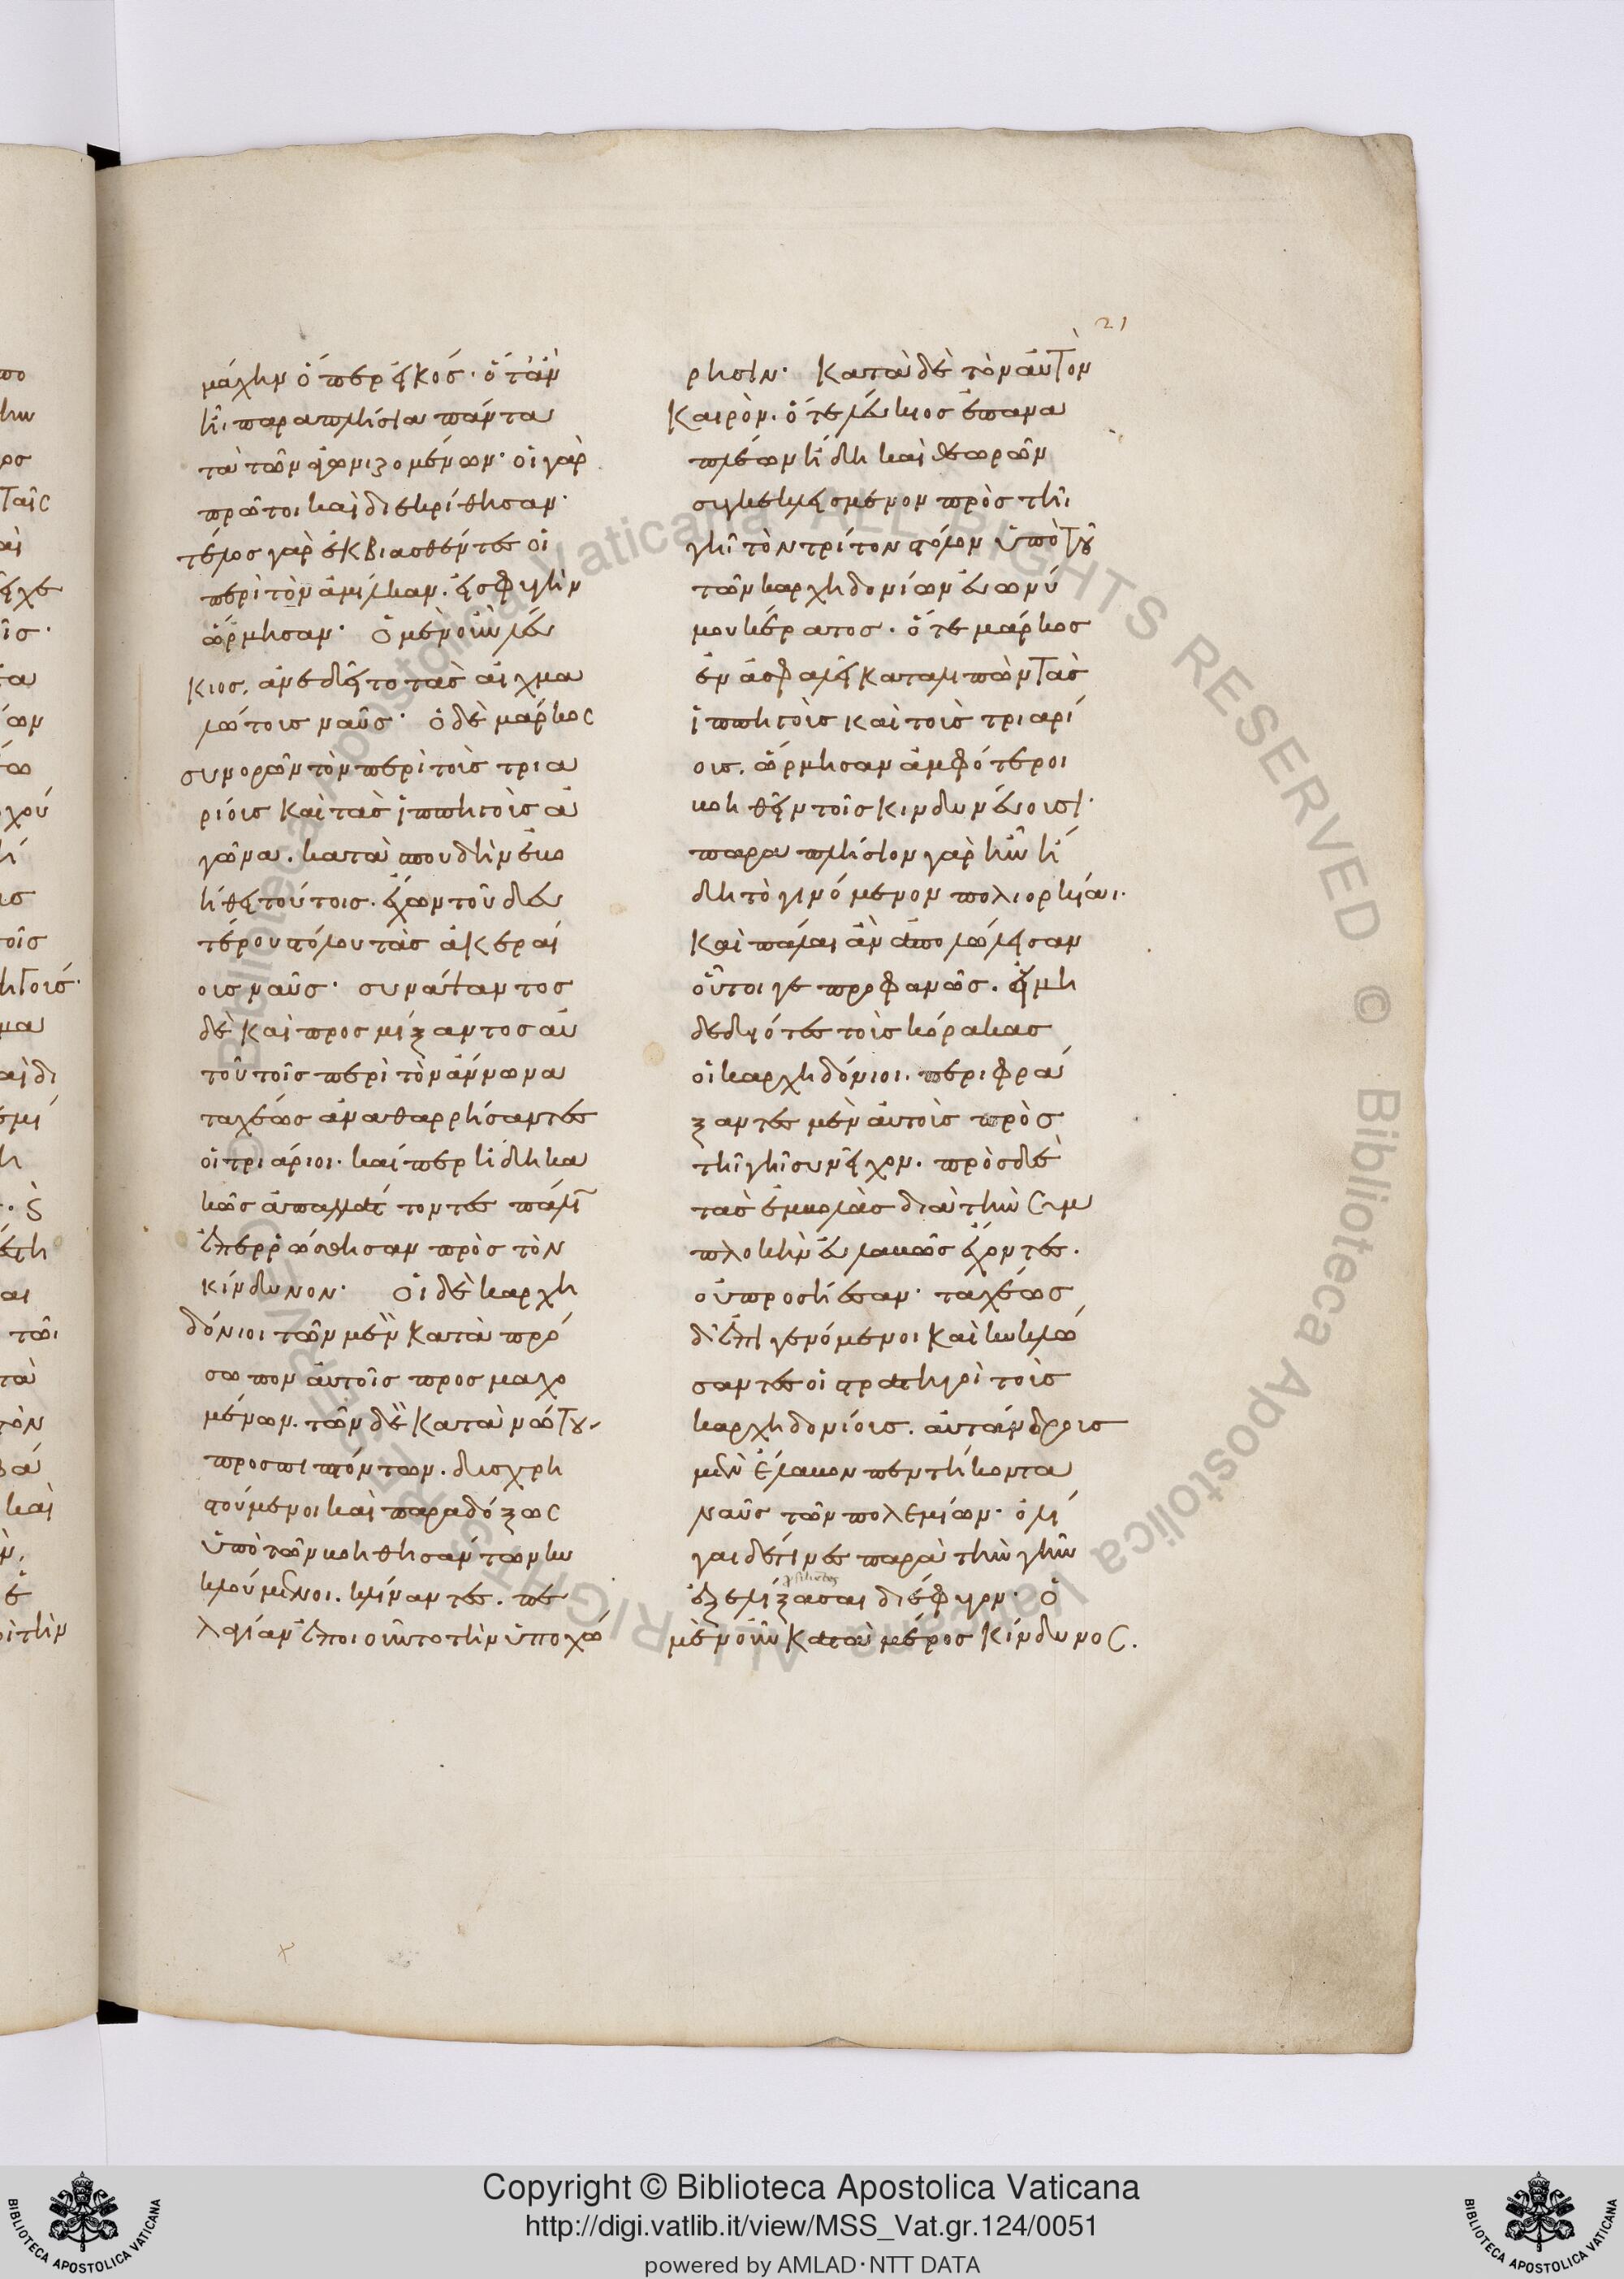 21
μάχην ὅπερ εἰκός· ὅταν
ἦι παραπλήσια πάντα
τὰ τῶν ἀγωνιζομένων· οἱ γὰρ
πρῶτοι καὶ διεκρίθησαν·
τέλος γὰρ ἐκβιασθέντες οἱ
περὶ τὸν ἀμίλκαν. εἰς φυγὴν
ὥρμησαν· ὁ μὲν οὖν λεύ
κιος. ἀνεδεῖτο τὰς αἰχμα
λώτους ναῦς· ὁ δὲ μάρκος
συνορῶν τὸν περὶ τοὺς τρια
ρίους καὶ τὰς ἱππηγοὺς ἀ
γῶνα. κατὰ σπουδὴν ἐβο
ήθει τούτοις. ἔχων τοῦ δευ
τέρου στόλου τὰς ἀκεραί
ους ναῦς· συνάψαντος
δὲ καὶ προσμίξαντος αὐ
τοῦ τοῖς περὶ τὸν ἄννωνα
ταχέως ἀναθαρρήσαντες
οἱ τριάριοι. καίπερ ἤδη κα
κῶς ἀπαλλάττοντες πάλιν
ἐπερρώσθησαν πρὸς τὸν
κίνδυνον· οἱ δὲ καρχη
δόνιοι τῶν μὲν κατὰ πρό
σωπον αὐτοῖς προσμαχο
μένων. τῶν δὲ κατὰ νώτου
προσπιπτόντων. δυσχρη
στούμενοι καὶ παραδόξως
ὑπὸ τῶν βοηθησάντων κυ
κλούμενοι. κλίναντες. πε
λαγίαν ἐποιοῦντο τὴν ὑποχώ
ρησιν· κατὰ δὲ τὸν αὐτὸν
καιρὸν. ὅ τε λεύκιος ἐπανα
πλέων ἤδη καὶ θεωρῶν
συγκεκλεισμένον πρὸς τῆι
γῆι τὸν τρίτον στόλον ὑπὸ τοῦ
τῶν καρχηδονίων εὐωνύ
μου κέρατος. ὅ τε μάρκος
ἐν ἀσφαλεῖ καταλιπὼν τὰς
ἱππηγοὺς καὶ τοὺς τριαρί
ους. ὥρμησαν ἀμφότεροι
βοηθεῖν τοῖς κινδυνεύουσι·
παραπλήσιον γὰρ ἦν ἤ
δη τὸ γινόμενον πολιορκίαι.
καὶ πάλαι ἂν ἀπολώλεισαν
οὗτοι γε προφανῶς. εἰ μὴ
δεδιότες τοὺς κόρακας
οἱ καρχηδόνιοι. περιφρά
ξαντες μὲν αὐτοὺς πρὸς
τῆι γῆι συνεῖχον. πρὸς δὲ
τὰς ἐμβολὰς διὰ τὴν συμ
πλοκὴν εὐλαβῶς ἔχοντες.
οὐ προσήιεσαν· ταχέως
δ' ἐπιγενόμενοι καὶ κυκλώ
σαντες οἱ στρατηγοὶ τοὺς
καρχηδονίους. αὐτάνδρους
μὲν ἔλαβον πεντήκοντα
ναῦς τῶν πολεμίων· ὀλί
γαι δέ τινες παρὰ τὴν γῆν
ἐξελίξασαι διέφυγον· ὁ
μὲν οὖν κατὰ μέρος κίνδυνος.
Copyright © Biblioteca Apostolica Vaticana
http://digi.vatlib.it/view/MSS_Vat.gr.124/0051
powered by AMLAD · NTT DATA